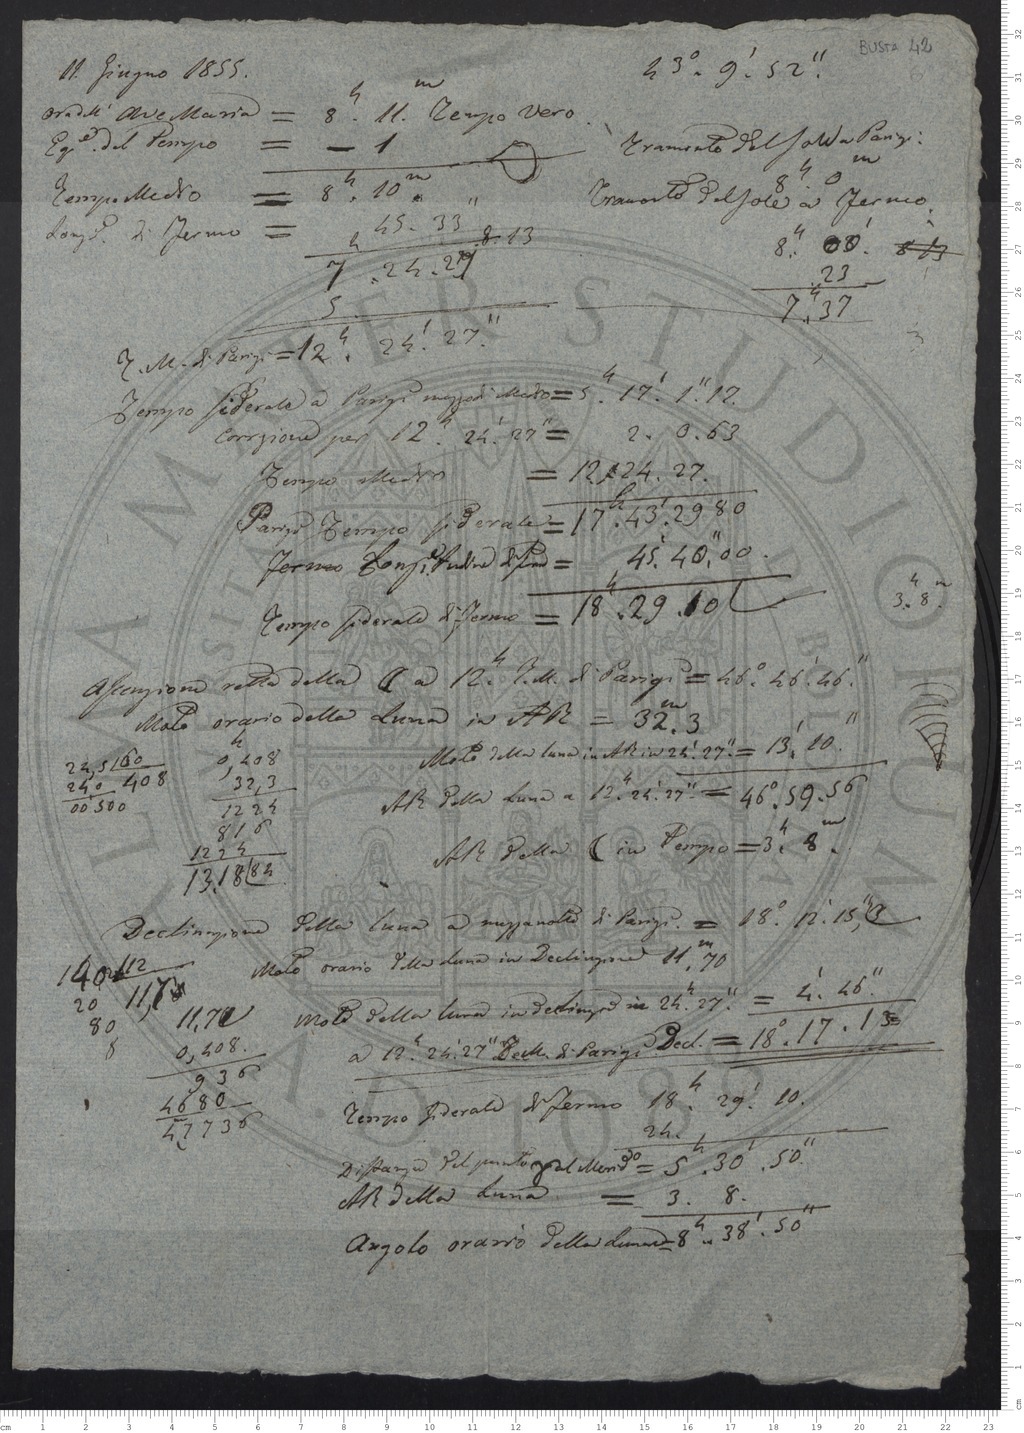 BUSTA 42
11. Giugno 1855.
43°. 9'. 52".
ora dell' Ave Maria = 8h. 11m. Tempo Vero.
Eqe. del Tempo = - 1
Tramonto del Sole a Parigi.
8h 0m
Tempo Medio = 8h. 10m.
Tramonto del Sole a Fermo.
Longe. di Fermo = 45. 33"
8. 13
8h. 00'. 8 13
7h. 24. 27
23
5
7h. 37
T. M. di Parigi = 12h. 24'. 27".
Tempo Siderale a Parigi mezzodì Medio = 5h. 17'. 1". 17.
Correzione per 12h. 24'. 27" = 2. 0.63
Tempo Medio = 12. 24. 27.
Parigi Tempo Siderale = 17h. 43'. 29 80
Fermo Longitudine = 45'. 40". 00.
3h. 8m.
Tempo Siderale di Fermo = 18h. 29. 10
Ascenzione retta della ☾ a 12h. T. M. di Parigi = 46°. 46'. 46."
Moto orario della Luna in AR = 32m.3
24,5 | 60
240 408
00500
0,408
32,3
1224
816
1224
13,18|84
Moto della Luna in AR in 24'. 27". = 13'. 10."
AR della Luna a 12h. 24'. 27" = 46°. 59. 56
AR della ☾ in Tempo = 3h. 8m.
Declinazione della Luna a mezzanotte di Parigi. = 18°. 12'. 15",3
Moto orario della Luna in Declinazione 11m,70
140 | 12
20 11,7
80
8
11,70
0,408.
936
4680
47736
Moto della Luna in declinaze in 24'. 27". = 4'. 46".
a 12h. 24'. 27" T. M. di Parigi Decl. = 18°. 17. 1
Tempo Siderale di Fermo 18h. 29'. 10.
24.
Distanza del punto al Merido = 5h. 30'. 50."
AR della Luna = 3. 8.
Angolo orario della Luna = 8h. 38'. 50"